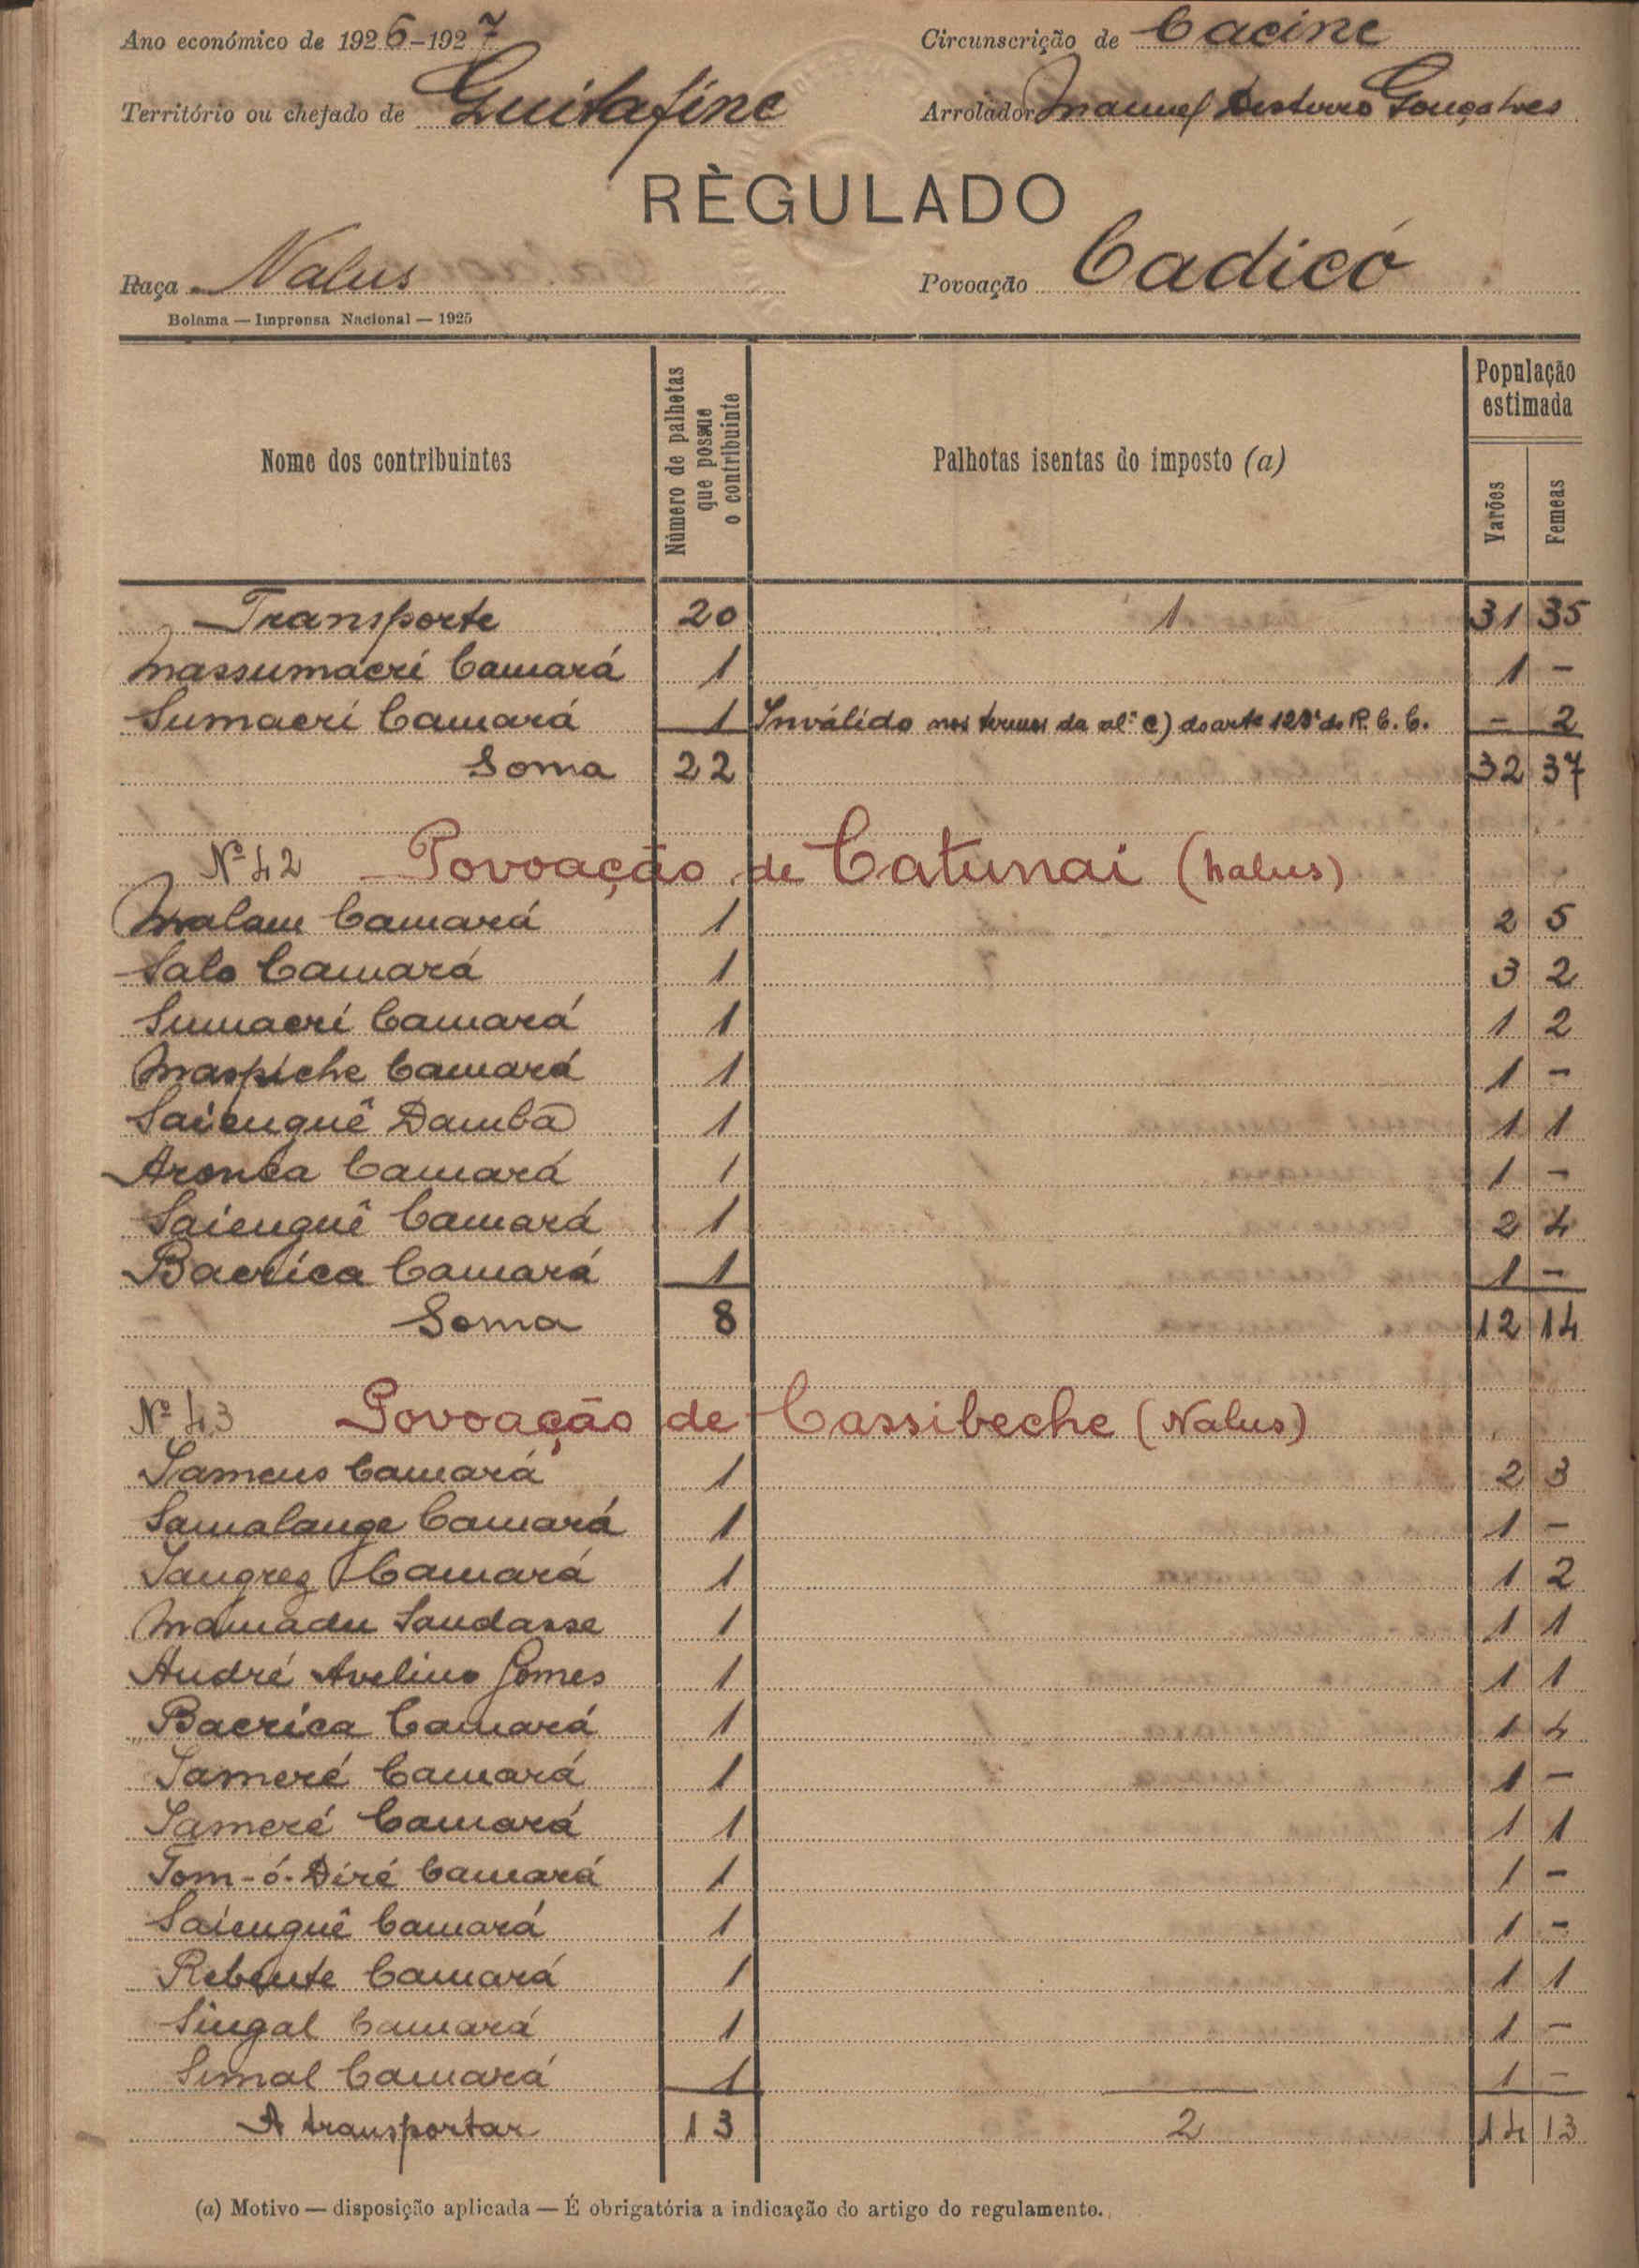 Ano económico de 1926-1927 Circunscrição de Cacine
Território ou chefado de Guitafine Arrolador Manuel Desterro Gonçalves
RÈGULADO
Raça Nalus Povoação Cadicó
Bolama — Imprensa Nacional — 1925
Nome dos contribuintes
Número de palhotas que possue o contribuinte
Palhotas isentas do imposto (a)
População estimada
Varões
Femeas
Transporte 20 1 31 35
Massumacri Camará 1 1 -
Sumacri Camará 1 Inválido nos termos da al.ª c) do arte 123º do R. C. C. - 2
Soma 22 32 37
Nº 42 Povoação de Catunai (Nalus)
Malam Camará 1 2 5
Salo Camará 1 3 2
Sumacri Camará 1 1 2
Maspiche Camará 1 1 -
Saienguê Dambá 1 1 1
Camará 1 1 -
Saienguê Camará 1 2 4
Bacrica Camará 1 1 -
Soma 8 12 14
Nº 43 Povoação de Cassibeche (Nalus)
Sameus Camará 1 2 3
Samalange Camará 1 1 -
Camará 1 1 2
Mamadu Sandasse 1 1 1
André Avelino Gomes 1 1 1
Bacrica Camará 1 1 4
Sameré Camará 1 1 -
Sameré Camará 1 1 1
Tom-ó-Diré Camará 1 1 -
Saienguê Camará 1 1 -
Rebente Camará 1 1 1
Singal Camará 1 1 -
Simal Camará 1 1 -
A transportar 13 2 14 13
(a) Motivo — disposição aplicada — É obrigatória a indicação do artigo do regulamento.